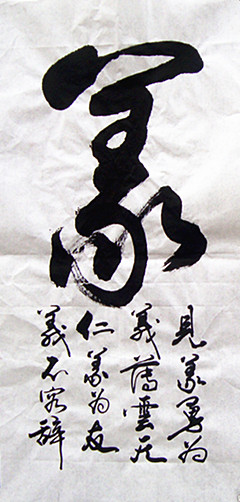 義
見義勇为
義薄雲天
仁義为友
義不容辭